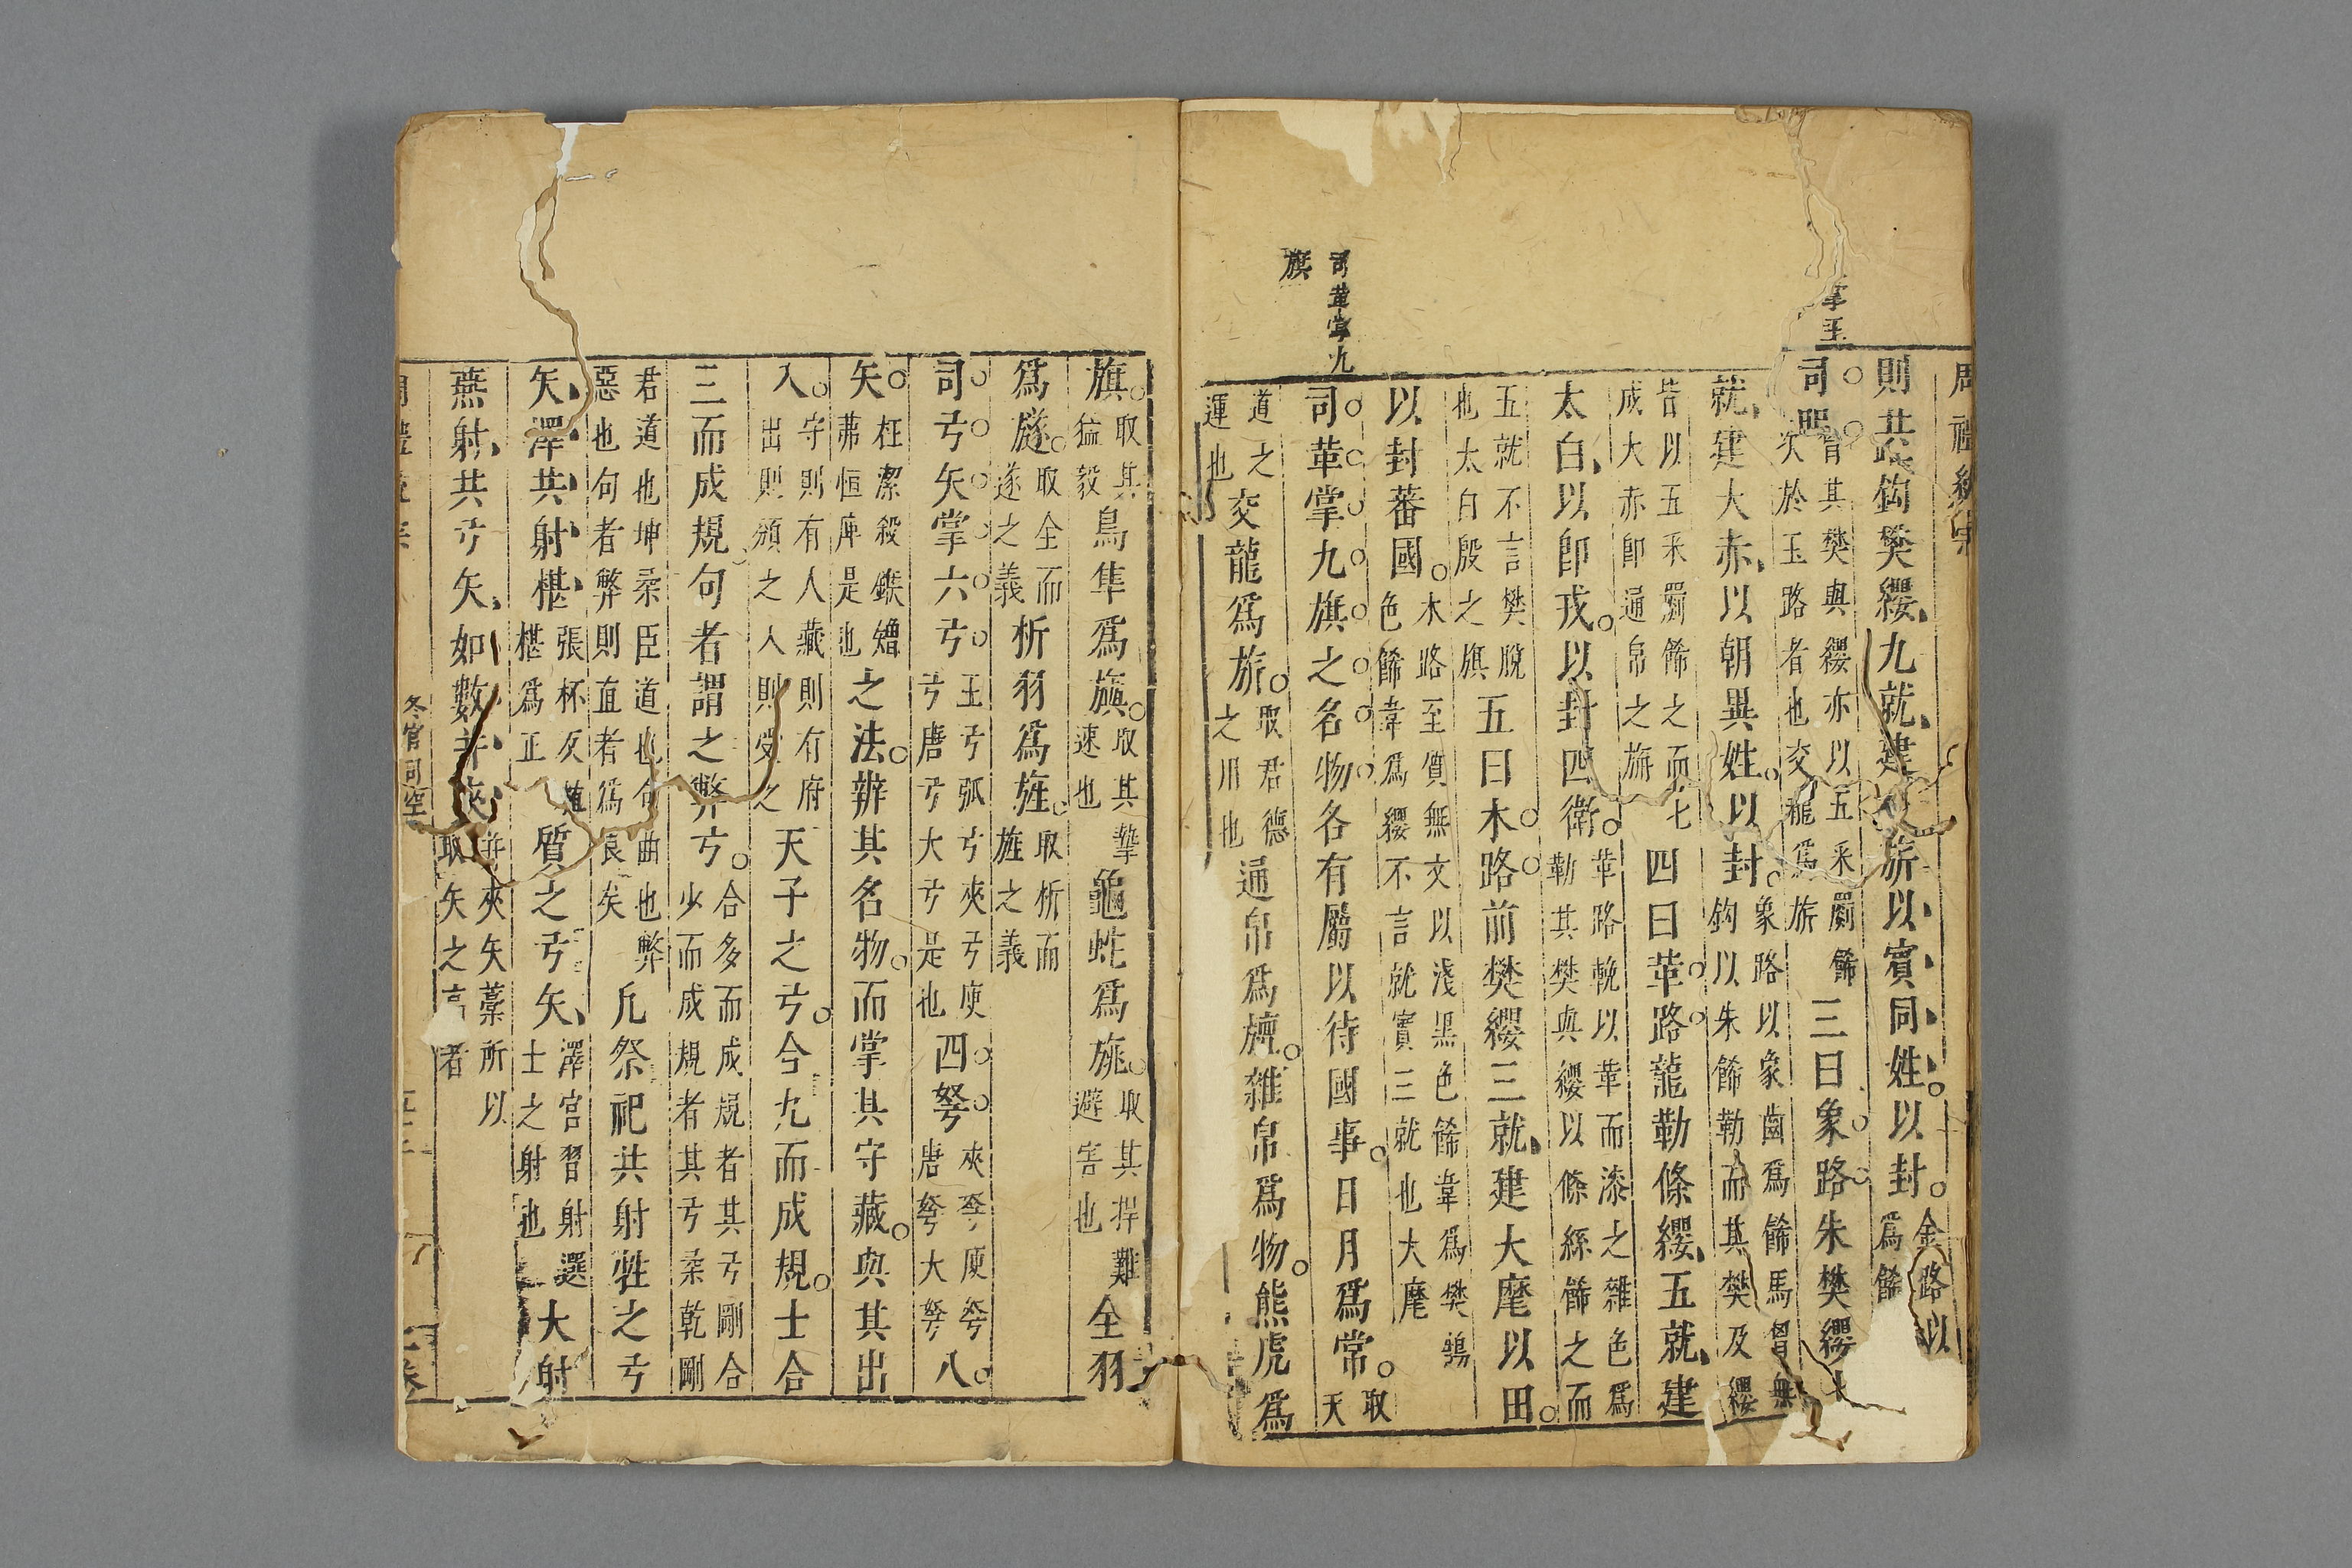 則共路鈎樊纓九就建旂以賓同姓以封金路以
爲餙
司
皆其樊與纓亦以五采罽餙
次於玉路者也交龍爲旂
三曰象路朱樊纓
就建大赤以朝異姓以封
象路以象齒爲餙馬胷無
鈎以朱餙勒而其樊及纓
皆以五采罽餙之而七
成大赤卽通帛之旃
四曰革路龍勒條纓五就建
太白以卽戎以封四衛
革路輓以革而漆之雜色爲
勒其樊與纓以絛絲餙之而
五就不言樊脫
也太白殷之旗
五曰木路前樊纓三就建大麾以田
以封蕃國
木路至質無文以淺黑色餙韋爲樊鵠
色餙韋爲纓不言就實三就也大麾
司革掌九旗之名物各有屬以待國事日月爲常
取
天
道之
運也
交龍爲旂
取君德
之用也
通帛爲旜雜帛爲物熊虎爲
司革掌九
旗
旗
取其
猛毅
鳥隼爲旟
取其摯
速也
龜蛇爲旐
取其捍難
避害也
全羽
爲旞
取全而
遂之義
析羽爲旌
取析而
旌之義
司弓矢掌六弓
王弓弧弓夾弓庾
弓唐弓大弓是也
四弩
夾弩庾弩
唐弩大弩
八
矢
枉潔殺鍭矰
茀恒庳是也
之法辨其名物而掌其守藏與其出
入
守則有人藏則有府
出則頒之入則受之
天子之弓合九而成規士合
三而成規句者謂之弊弓
合多而成規者其弓剛合
少而成規者其弓柔乾剛
君道也坤柔臣道也句曲也弊
惡也句者弊則直者爲良矣
凡祭祀共射牲之弓
矢澤共射椹
張杯仄
椹爲正
質之弓矢
澤宮習射選
士之射也
大射
燕射共弓矢如數并夾
并夾矢藁所以
取矢之高者
冬官司空